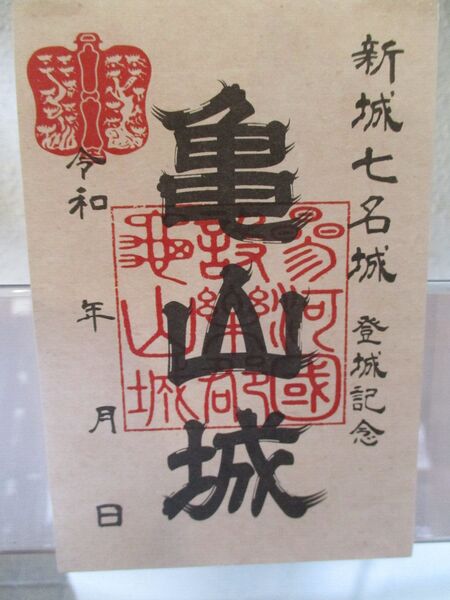 新城七名城 登城記念
亀山城
令和 年 月 日
参河國
設樂郡
亀山城